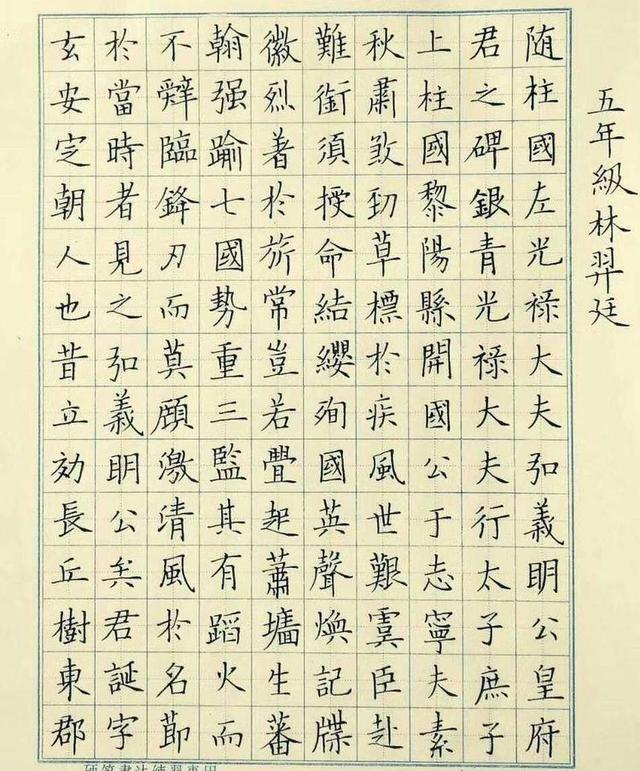 五年級林羿廷
随柱國左光禄大夫弘義眀公皇府
君之碑銀青光禄大夫行太子庶子
上柱國黎陽縣開國公于志寧夫素
秋肅煞勁草標於疾風世艱虞臣赴
難銜須授命結纓殉國英聲煥記牒
徽烈著於旂常豈若舋起蕭墻生蕃
翰强踰七國勢重三監其有蹈火而
不辤臨鋒刃而莫顧激清風於名節
於當時者見之弘義眀公矣君誕字
玄安定朝人也昔立効長丘樹東郡